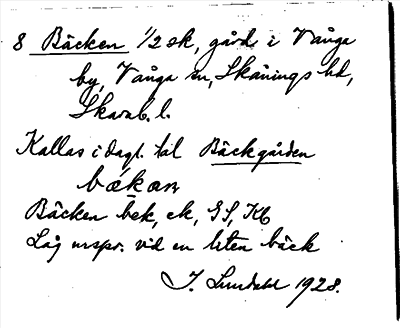 8 Bäcken 1/2 sk, gård i Vånga
by, Vånga sn, Skånings hd,
Skarab. l.
Kallas i dagl. tal Bäckgården
bækan
Bäcken bek, ek, GS, Kb
Låg urspr. vid en liten bäck
J. Lundahl 1928.